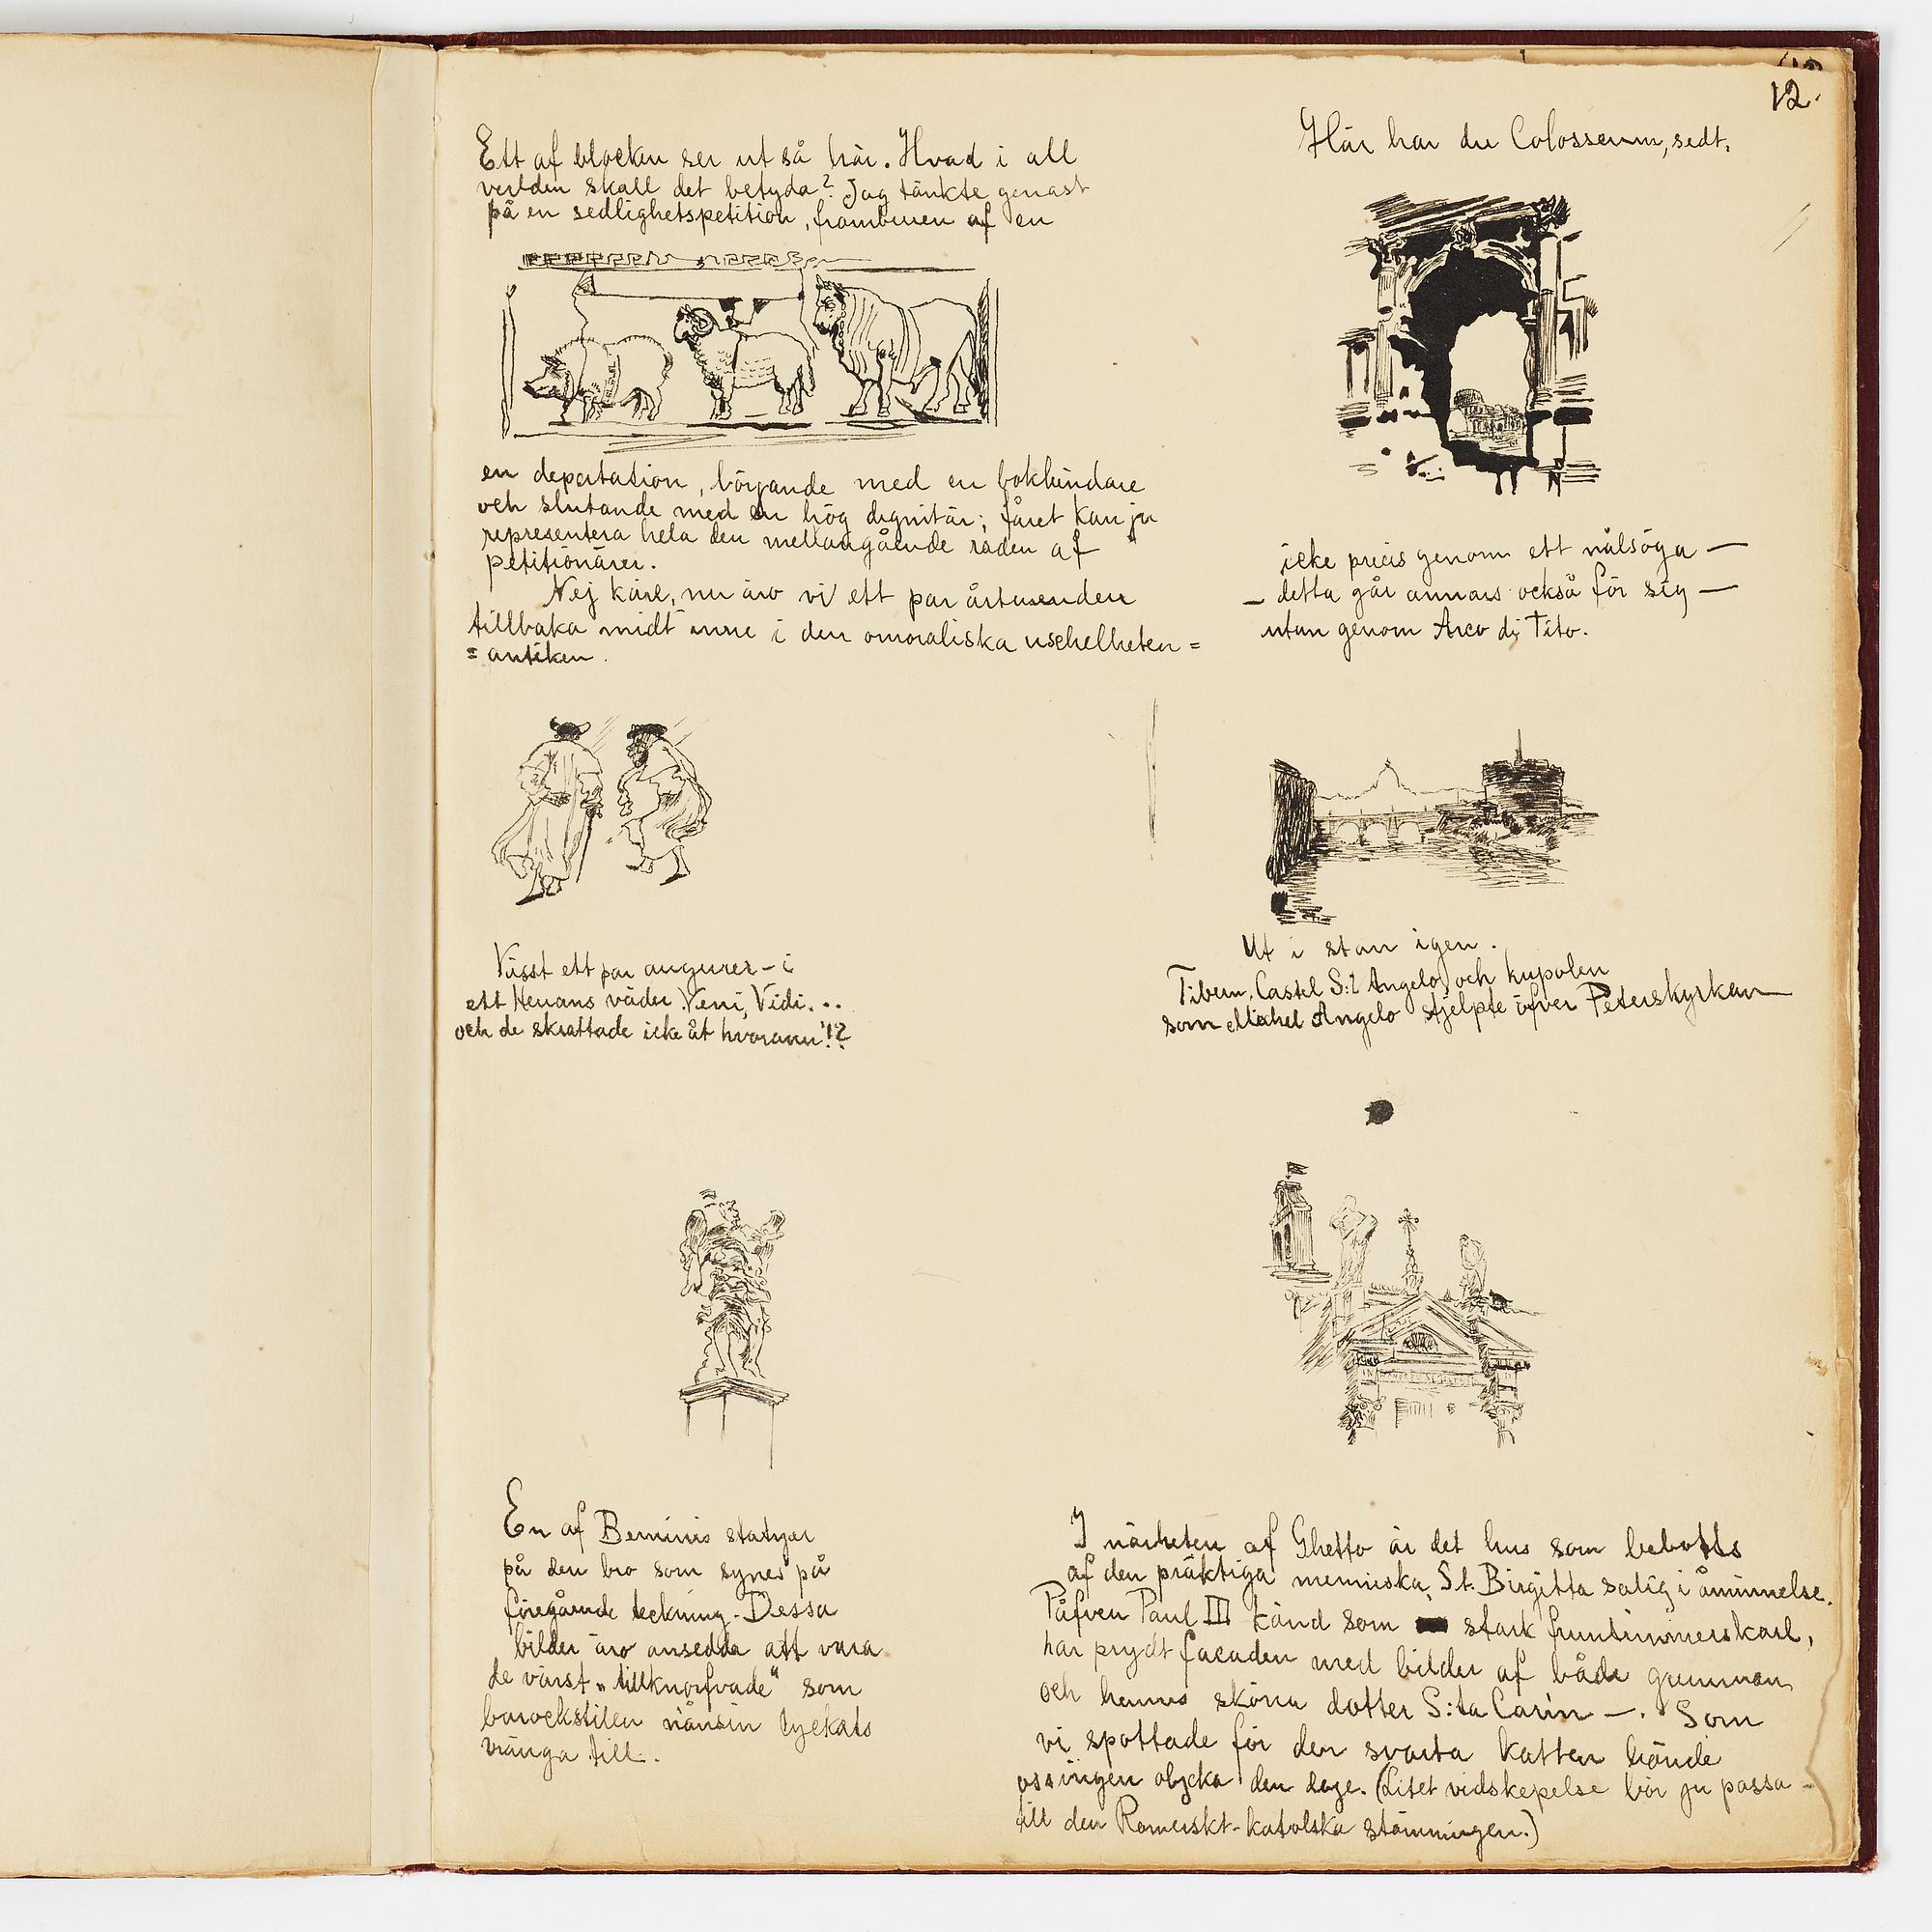 12.
Ett af blocken ser ut så här. Hvad i all
verlden skall det betyda? Jag tänkte genast
på en sedlighetspetition, framburen af en
en deputation, börjande med en bokbindare
och slutande med en hög dignitär; fåret kan ju
representera hela den mellangående raden af
petitionärer.
Nej kärl, nu äro vi ett par årtusenden
tillbaka midt inne i den omoraliska uselheten =
= antiken.
Visst ett par augurer – i
ett Herrans väder. Veni, Vidi...
och de skrattade icke åt hvarann!?
En af Berninis statyer
på den bro som synes på
föregående teckning. Dessa
bilder äro ansedda att vara
de värst „tillknorfvade" som
barockstilen nånsin lyckats
vränga till.
Här har du Colosseum, sedt,
icke precis genom ett nålsöga —
— detta går annars också för sig —
utan genom Arco di Tito.
Ut i stan igen.
Tibern, Castel S:t Angelo, och kupolen
som Michel Angelo stjelpte öfver Peterskyrkan
I närheten af Ghetto är det hus som bebotts
af den präktiga menniska, St. Birgitta salig i åminnelse.
Påfven Paul III känd som stark fruntimmerskarl,
har prydt facaden med bilder af både gumman
och hennes sköna dotter S:ta Carin —. Som
vi spottade för den svarta katten hände
oss ingen olycka den dage. (Litet vidskepelse bör ju passa -
till den Romerskt-katolska stämningen.)